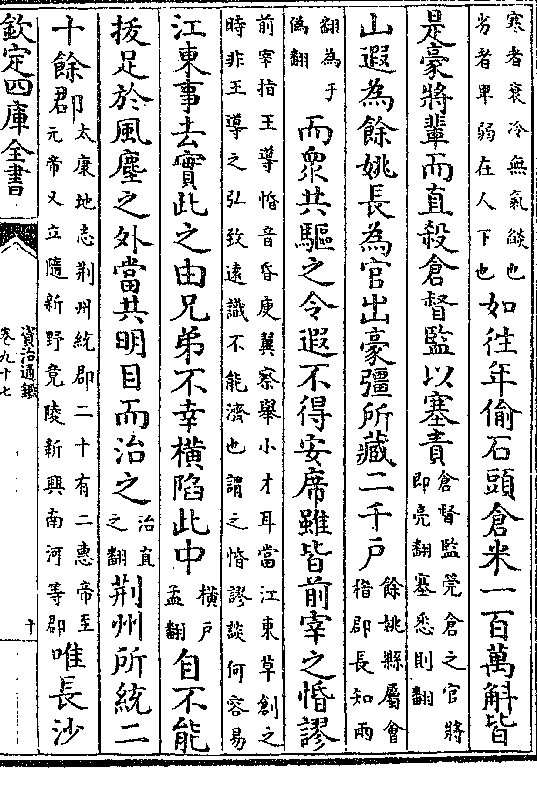 寒者衰冷無氣燄也
劣者卑弱在人下也
如往年偷石頭倉米一百萬斛皆
是豪將輩而直殺倉督監以塞責
倉督監筦倉之官將
即亮翻塞悉則翻
山遐為餘姚長為官出豪彊所藏二千户
餘姚縣屬會
稽郡長知兩
翻為于
偽翻
而衆共驅之令遐不得安席雖皆前宰之惛謬
前宰指王導惛音昏庾翼察舉小才耳當江東草創之
時非王導之弘致遠識不能濟也謂之惛謬談何容易
江東事去實此之由兄弟不幸横陷此中
横户
孟翻
自不能
拔足於風塵之外當共明目而治之
治直
之翻
荆州所統二
十餘郡
太康地志荆州統郡二十有二惠帝至
元帝又立隨新野竟陵新興南河等郡
唯長沙
欽定四庫全書
資治通鑑
卷九十七
十